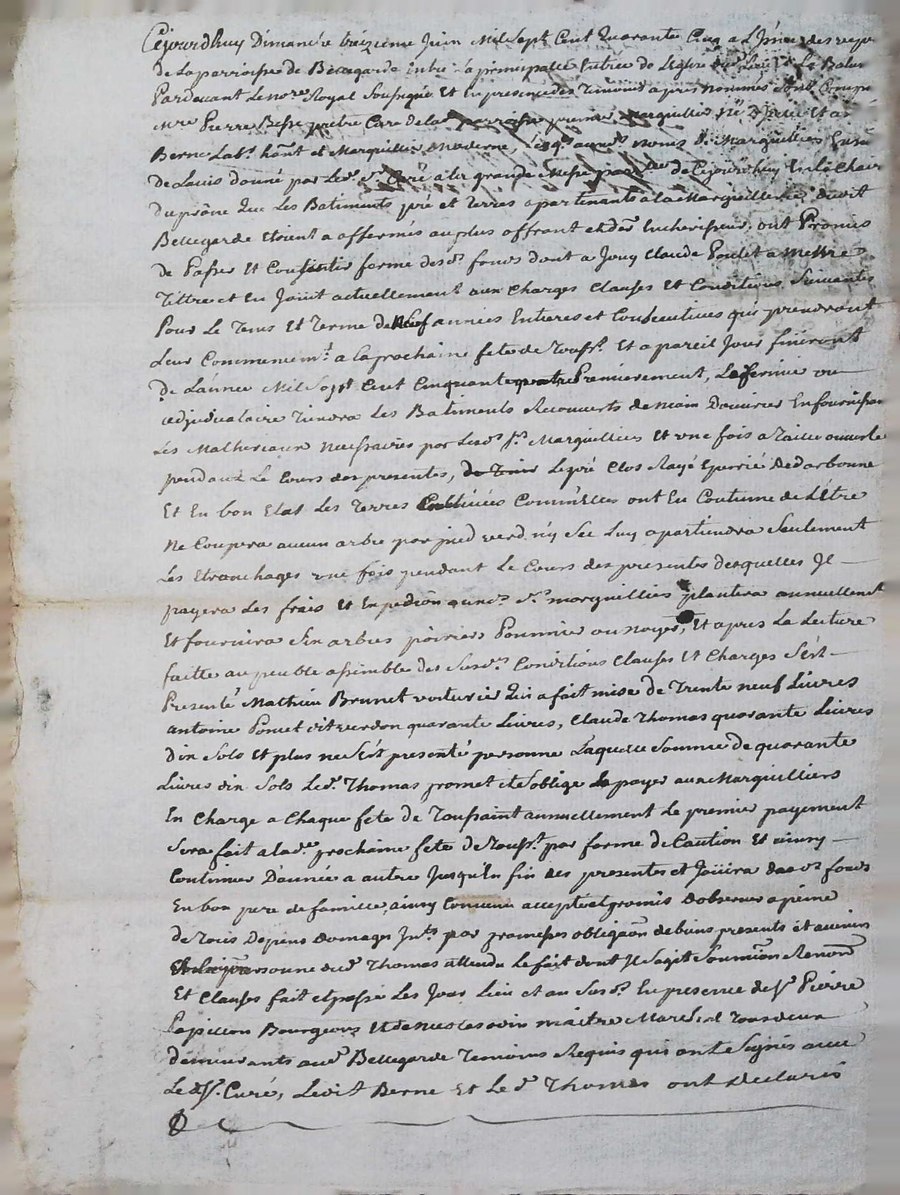 Cejourdhuy Dimanche treizieme Juin Mil Sept Cent Quarante Cinq a L'issue des vespres
de Laparroisse de Bellegarde
Pardevant Le nore Royal Soussigné Et En presence des Temoins apres nommés
Mre Pierre Besse prebtre Curé de la parroisse premier Marguillier
Berne Labr. hânt et Marguillier Moderne, Lesqs auxds noms de Marguilliers
de Lauis donné par Led. Sr. Curé a la grande Messe de Cejourdhuy En la Chair
Du prône que Les Batiments pré et Terres apartenants a la Marguillerie dudit
Bellegarde Etoient a affermés au plus offrant et der Encherisseur, ont Promis
de Passer Et Consentir ferme desds fonds dont a Jouy Claude Poulet a Mettre
Tiltre et En Jouit actuellement aux Charges Clauses Et Conditions Suivantes
Pour Le Tems Et Terme de Neuf années Entieres et Consecutives qui prendront
Leur Commencemt. a la prochaine fete de Toussts. Et a pareil Jour finiront
De Lannée Mil Sept Cent Cinquante quatre Premierement, Le fermier ou
adjudicataire Tiendra Les Batiments Recouverts de main Douvrier En fournissant
Les Matheriaux Necessaires par Lesds Srs Marguilliers Et une fois a Taille ouverte
pendant Le Cours des presentes, Le pré Clos Rayé Eperrié Dedarbonné
Et En bon Etat Les Terres Cultivées Comm'Elles ont En Coutume de L'Etre
Ne Coupera aucun arbre par pied verd ny Sec Luy apartiendra Seulement
Les Etranchages une fois pendant Le Cours des presentes desquelles Il
payera Les frais Et Expedion auxds Srs marguilliers plantera annuellemt
Et fournira Six arbres poiriers Pommier ou noyer, Et apres La Lecture
faitte au peuble assemblé des Susds. Conditions Clauses Et Charges S'est
Presenté Mathieu Brunet voiturier Qui a fait mise de Trente neuf Livres
antoine Poncet dit verdon quarante Livres, Claude Thomas quarante Livres
Dix Sols Et plus ne S'est presenté personne Laquelle Somme de quarante
Livres dix Sols Led. Thomas promet et s'oblige payer aux Marguilliers
En Charge a Chaque fete de Toussaint annuellement Le premier payement
Sera fait a lade prochaine fete de Toussts par forme de Caution Et ainsy
Continuer D'année a autre Jusqu'En fin des presentes et Joüira desds fonds
En bon pere de famille, ainsy Convenu accepté et promis D'observer a peine
de Tous Depens Domages Jnts par promesses obligaõn de biens presents et avenirs
personne dud. Thomas attendu Le fait dont Il S'agit Soumiõn Renonõn
Et Clauses fait et passé Les Jour Lieu et an Susds. En presence de Sr Pierre
Papillon Bourgeois Et maitre Marechal Tous deux
demeurants aud Bellegarde Temoins Requis qui ont Signés avec
Le dSr. Curé, Ledit Berne Et Led. Thomas ont declarés